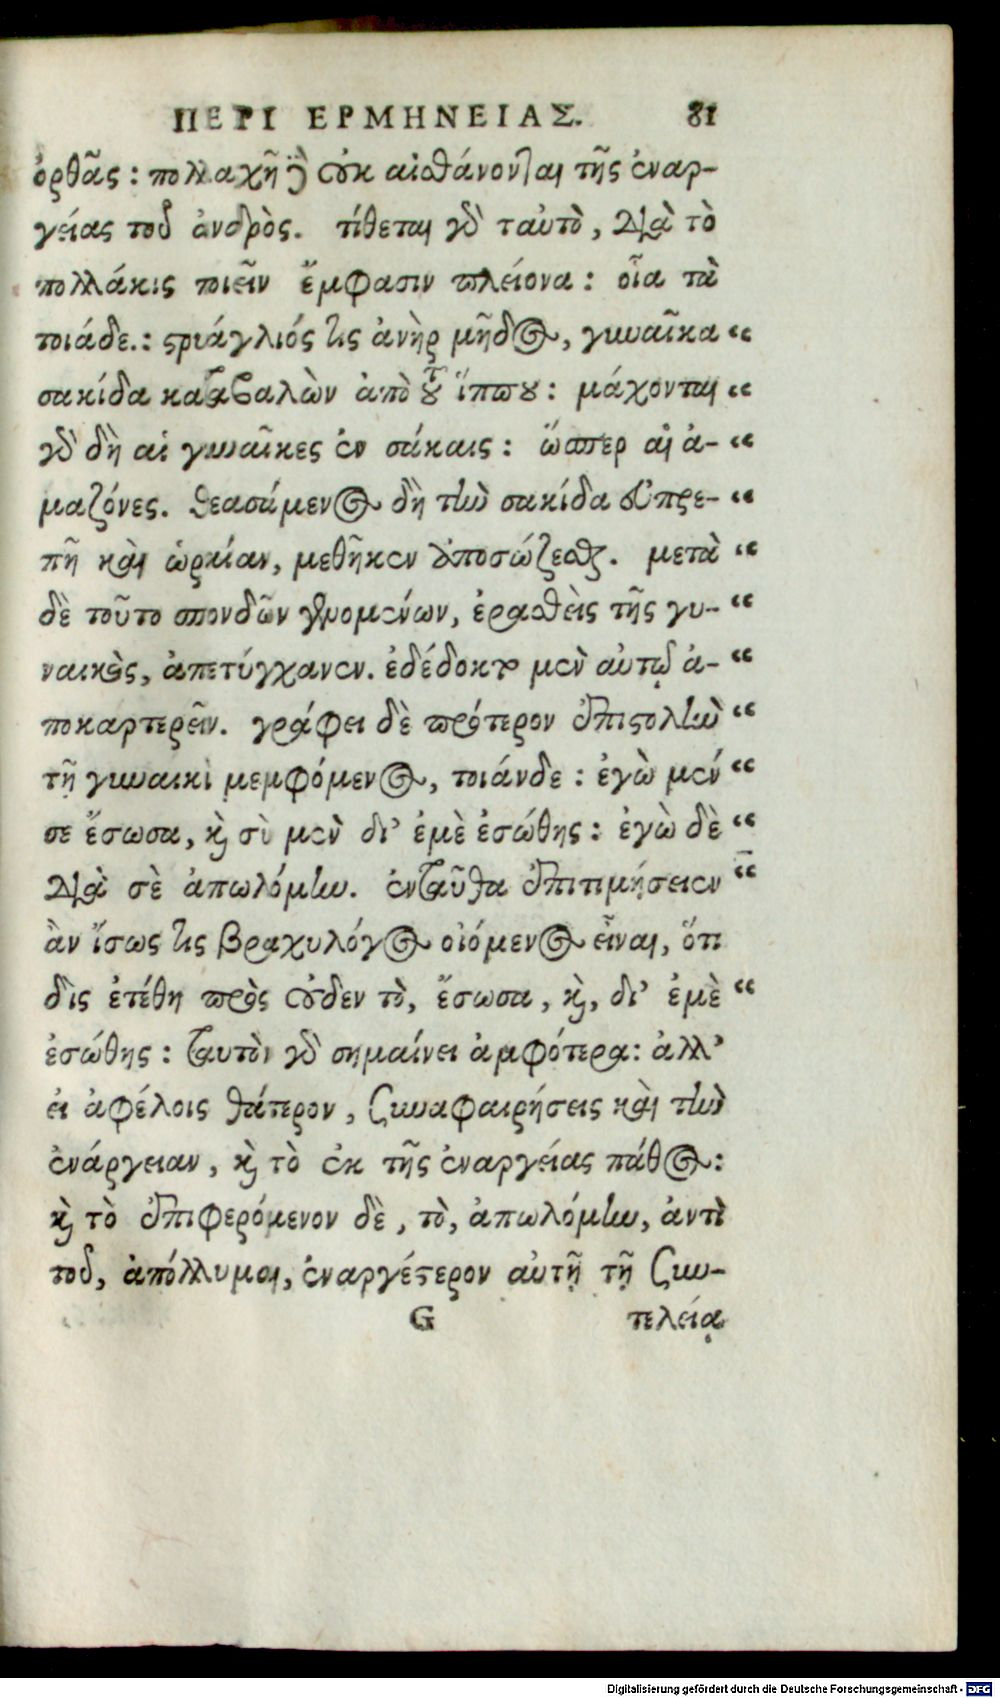 ΠΕΡΙ ΕΡΜΗΝΕΙΑΣ. 81
ὀρθᾶς: πολλαχῆ δὲ οὐκ αἰσθάνονται τῆς ἐναρ-
γείας τοῦ ἀνδρὸς. τίθεται γὸ ταὐτὸ, διὰ τὸ
πολλάκις ποιεῖν ἔμφασιν πλείονα: οἷα τὰ
τοιάδε.: στριάγλιός τις ἀνὴρ μῆδος, γυναῖκα “
σακίδα καταβαλὼν ἀπὸ τοῦ ἵππου: μάχονται “
γὸ δὴ αἱ γυναῖκες ἐν σάκαις: ὥσπερ αἱ ἀ- “
μαζόνες. θεασάμενος δὴ τὴν σακίδα εὐπρε- “
πῆ καὶ ὡρκίαν, μεθῆκεν ἀποσώζεσθαι. μετὰ “
δὲ τοῦτο σπονδῶν γενομένων, ἐρασθεὶς τῆς γυ- “
ναικὸς, ἀπετύγχανεν. ἐδέδοκτο μὲν αὐτῷ ἀ- “
ποκαρτερεῖν. γράφει δὲ πρότερον ἐπιστολὴν “
τῇ γυναικὶ μεμφόμενος, τοιάνδε: ἐγὼ μέν “
σε ἔσωσα, καὶ σὺ μὲν δι’ ἐμὲ ἐσώθης: ἐγὼ δὲ “
διὰ σὲ ἀπωλόμην. ἐνταῦθα ἐπιτιμήσειεν “
ἂν ἴσως τις βραχυλόγος οἰόμενος εἶναι, ὅτι
δὶς ἐτέθη πρὸς οὐδεν τὸ, ἔσωσα, καὶ, δι’ ἐμὲ “
ἐσώθης: ταυτὸν γὸ σημαίνει ἀμφότερα: ἀλλ’
εἰ ἀφέλοις θάτερον, συναφαιρήσεις καὶ τὴν
ἐνάργειαν, καὶ τὸ ἐκ τῆς ἐναργείας πάθος:
καὶ τὸ ἐπιφερόμενον δὲ, τὸ, ἀπωλόμην, ἀντὶ
τοῦ, ἀπόλλυμαι, ἐναργέστερον αὐτῇ τῇ συν-
G τελείᾳ
Digitalisierung gefördert durch die Deutsche Forschungsgemeinschaft - DFG